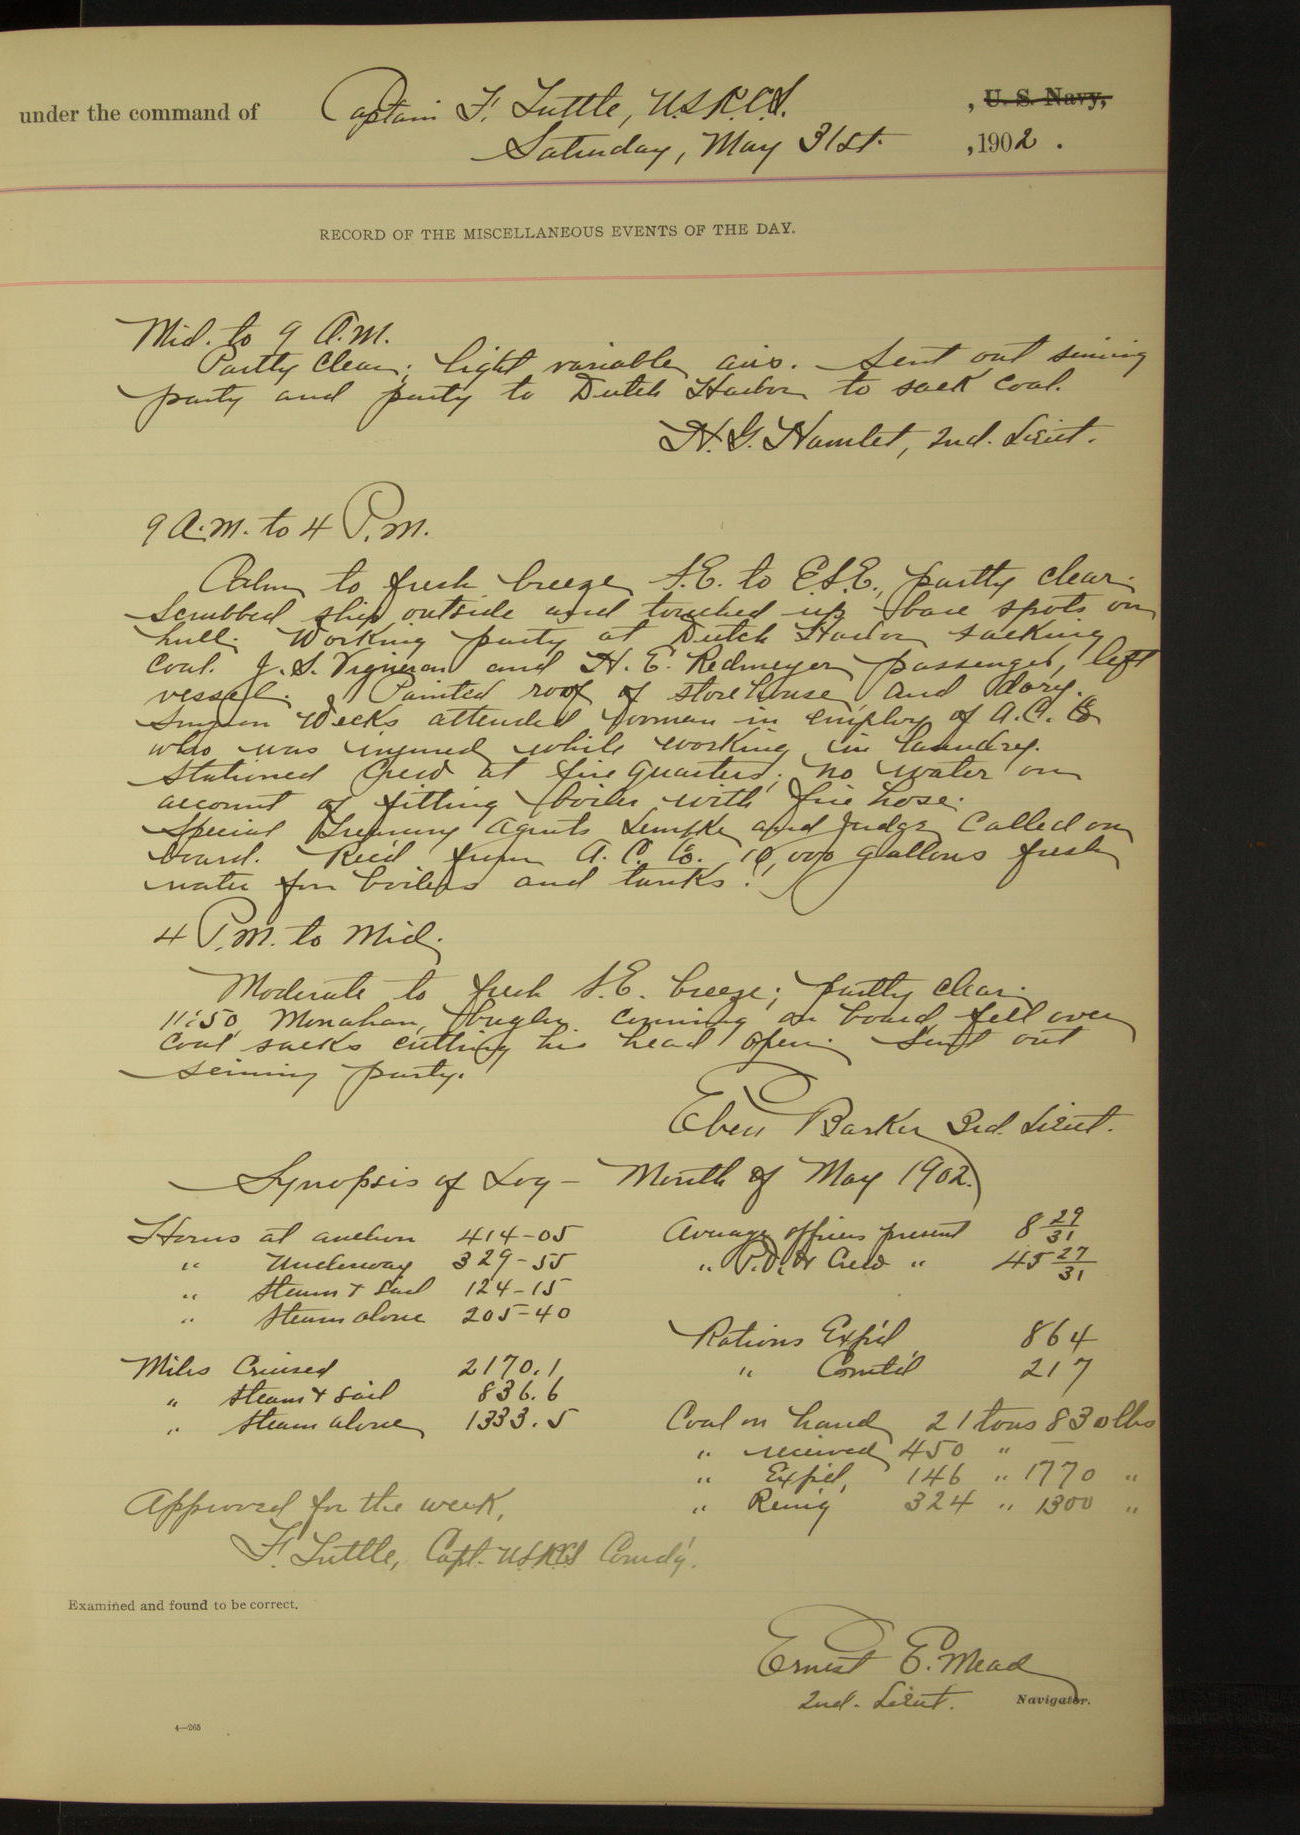 under the command of Captain F. Tuttle, U.S.R.C.S. , U. S. Navy,
Saturday, May 31st. , 1902 .
RECORD OF THE MISCELLANEOUS EVENTS OF THE DAY.
Mid. to 9 A.M.
Partly clear; light variable airs. Sent out seining
party and party to Dutch Harbor to sack coal.
H. G. Hamlet, 2nd. Lieut.
9 A.M. to 4 P.M.
Calm to fresh breeze S.E. to E.S.E., partly clear.
Scrubbed ship outside and touched up bare spots on
hull. Working party at Dutch Harbor sacking
coal. J. S. Vigneran and H. E. Redmeyer, passenger, left
vessel. Painted roof of storehouse and dory.
Surgeon Weeks attended Doorman in employ of A. C. Co
who was injured while working in laundry.
Stationed Crew at fire quarters; no water on
account of fitting boiler with fire hose.
Special Treasury Agents Lempke and Judge called on
board. Rec'd from A. C. Co. 10,000 gallons fresh
water for boilers and tanks.
4 P.M. to Mid.
Moderate to fresh S.E. breeze; partly clear.
11:50 Monahan, bugler coming on board fell over
coal sacks cutting his head open. Sent out
seining party.
Eben Barker 3rd. Lieut.
Synopsis of Log - Month of May 1902.
Hours at anchor 414-05
" Underway 329-55
" Steam & Sail 124-15
" Steam alone 205-40
Miles Cruised 2170.1
" Steam & Sail 836.6
" Steam alone 1333.5
Average officers present 8 29/31
" P.O. & Crew " 45 27/31
Rations Exp'd 864
" Comt'd 217
Coal on hand 21 tons 830 lbs
" received 450 " —
" Exp'd, 146 " 1770 "
" Remi'g 324 " 1300 "
Approved for the week,
F. Tuttle, Capt. U.S.R.C.S Comd'g.
Examined and found to be correct.
Ernest E. Mead
2nd. Lieut. Navigator.
4—265